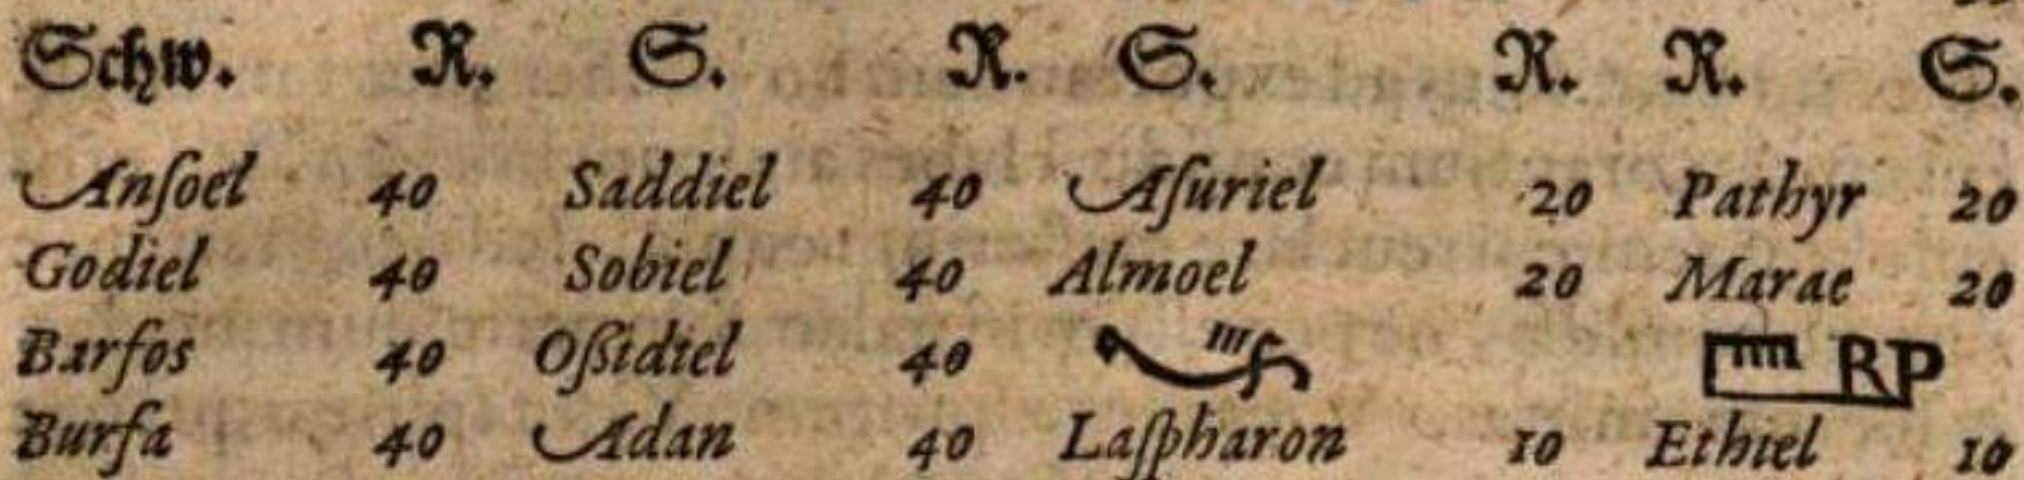 Schw. R. S. R. S. R. R. S.
Anſoel 40 Saddiel 40 Aſuriel 20 Pathyr 20
Godiel 40 Sobiel 40 Almoel 20 Marae 20
Barfos 40 Oßidiel 40 RP
Burfa 40 Adan 40 Laſpharon 10 Ethiel 10